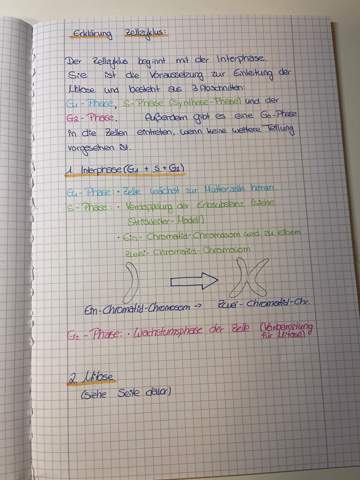 Erklärung Zellzyklus:
Der Zellzyklus beginnt mit der Interphase.
Sie ist die Voraussetzung zur Einleitung der
Mitose und besteht aus 3 Abschnitten:
G1-Phase, S-Phase (Synthese-Phase) und der
G2-Phase. Außerdem gibt es eine G0-Phase
in die Zellen eintreten, wenn keine weitere Teilung
vorgesehen ist.
1. Interphase (G1 + S + G2)
G1-Phase: • Zelle wächst zur Mutterzelle heran
S-Phase: • Verdopplung der Erbsubstanz (siehe
Strickleiter-Modell)
• Ein-Chromatid-Chromosom wird zu einem
Zwei-Chromatid-Chromosom
Ein-Chromatid-Chromosom → Zwei-Chromatid-Chr.
G2-Phase: • Wachstumsphase der Zelle (Vorbereitung
für Mitose)
2. Mitose
(siehe Seite davor)